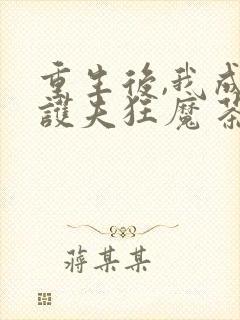 重生後,我成
護夫狂魔 茶
蔣某某